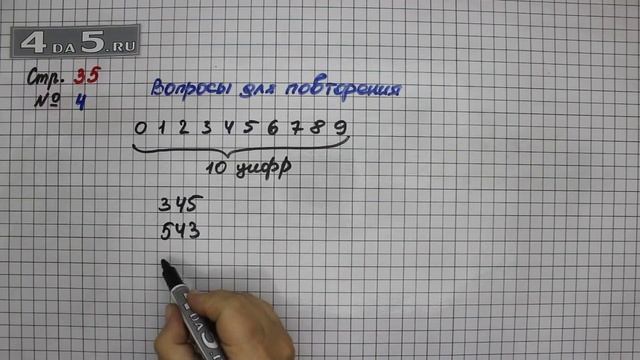 4DA5.RU
Стр. 35
№ 4
Вопросы для повторения
0 1 2 3 4 5 6 7 8 9
10 цифр
345
543
4DA5